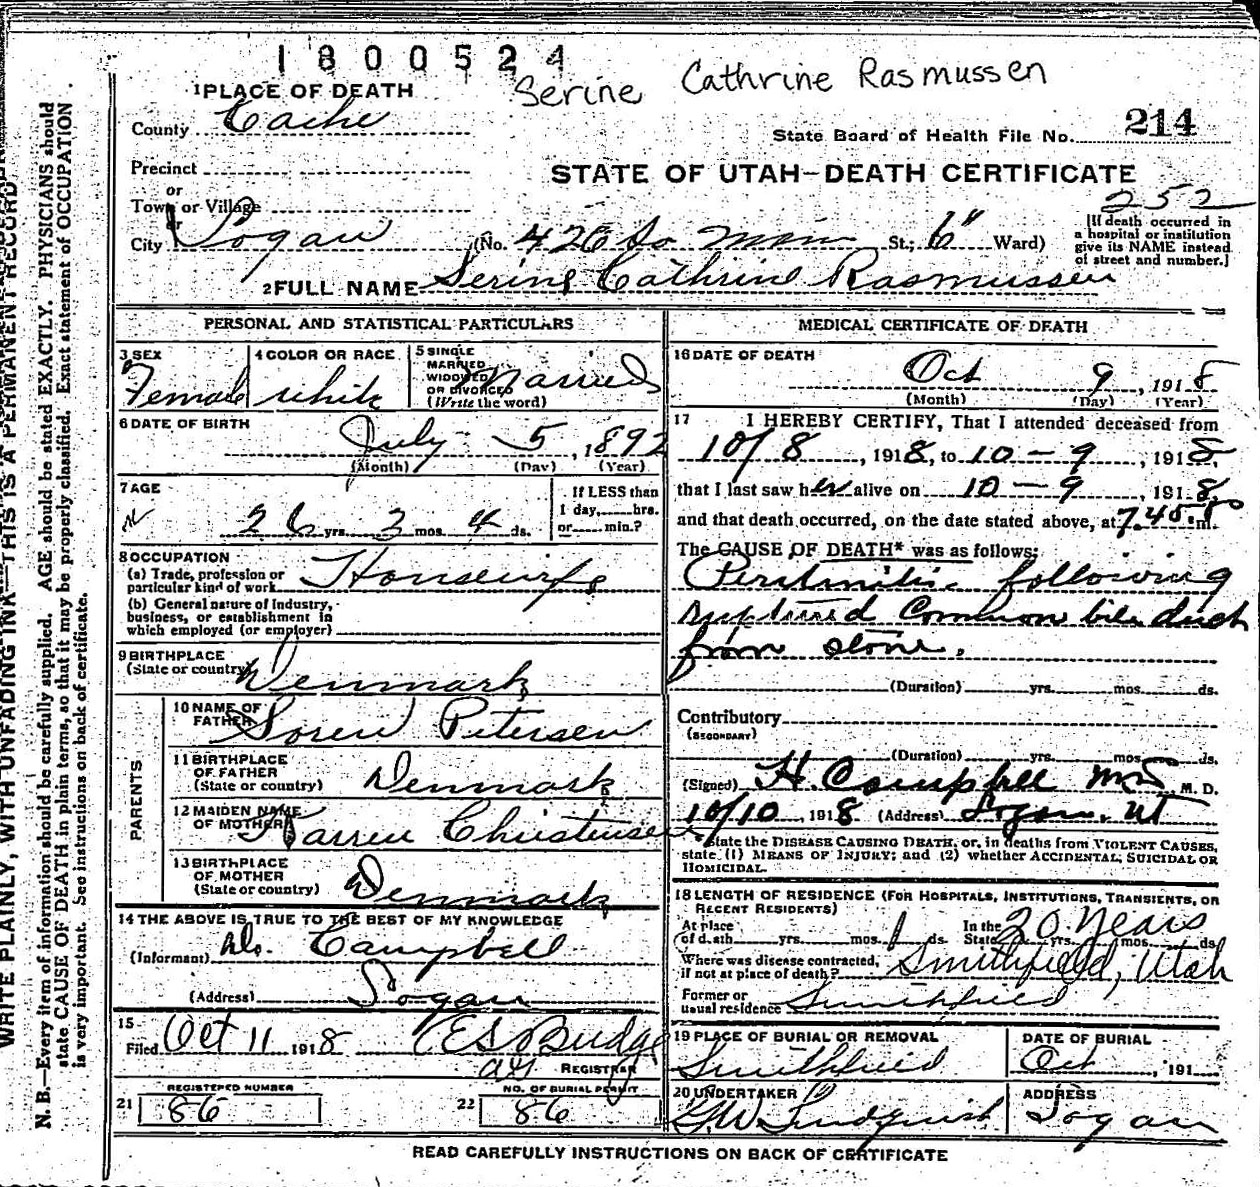 1800524
Serine Cathrine Rasmussen
1 PLACE OF DEATH
County Cache
State Board of Health File No. 214
Precinct
or
Town or Village
or
STATE OF UTAH—DEATH CERTIFICATE
252
City Logan (No. 426 So Main St.; 6" Ward)
[If death occurred in
a hospital or institution
give its NAME instead
of street and number.]
2 FULL NAME Serine Cathrine Rasmussen
PERSONAL AND STATISTICAL PARTICULARS
3 SEX
Female
4 COLOR OR RACE
white
5 SINGLE
MARRIED
WIDOWED
OR DIVORCED
(Write the word)
Married
6 DATE OF BIRTH
July 5, 1892
(Month) (Day) (Year)
7 AGE
26 yrs. 3 mos. 4 ds.
If LESS than
1 day, hrs.
or min.?
8 OCCUPATION
(a) Trade, profession or
particular kind of work Housewife
(b) General nature of Industry,
business, or establishment in
which employed (or employer)
9 BIRTHPLACE
(State or country) Denmark
PARENTS
10 NAME OF
FATHER Soren Petersen
11 BIRTHPLACE
OF FATHER
(State or country) Denmark
12 MAIDEN NAME
OF MOTHER Karren Christensen
13 BIRTHPLACE
OF MOTHER
(State or country) Denmark
14 THE ABOVE IS TRUE TO THE BEST OF MY KNOWLEDGE
(Informant) Campbell
(Address) Logan
15
Filed Oct 11 1918 E S Budge
REGISTRAR
REGISTERED NUMBER
21 86
NO. OF BURIAL PERMIT
22 86
MEDICAL CERTIFICATE OF DEATH
16 DATE OF DEATH
Oct 9, 1918
(Month) (Day) (Year)
17 I HEREBY CERTIFY, That I attended deceased from
10/8, 1918, to 10-9, 1918,
that I last saw her alive on 10-9, 1918,
and that death occurred, on the date stated above, at 7.45 P m.
The CAUSE OF DEATH* was as follows:
Peritonitis following
ruptured Common bile duct
from stone.
(Duration) yrs. mos. ds.
Contributory
(SECONDARY)
(Duration) yrs. mos. ds.
(Signed) H Campbell M. D.
10/10, 1918 (Address) Logan, Ut
*State the DISEASE CAUSING DEATH, or, in deaths from VIOLENT CAUSES,
state (1) MEANS OF INJURY; and (2) whether ACCIDENTAL, SUICIDAL OR
HOMICIDAL.
18 LENGTH OF RESIDENCE (FOR HOSPITALS, INSTITUTIONS, TRANSIENTS, OR
RECENT RESIDENTS)
At place
of death yrs. mos. 1 ds. In the
State 20 Years yrs. mos. ds.
Where was disease contracted,
if not at place of death? Smithfield, Utah
Former or
usual residence Smithfield
19 PLACE OF BURIAL OR REMOVAL
Smithfield
DATE OF BURIAL
Oct, 191
20 UNDERTAKER
G W Lindquist
ADDRESS
Logan
READ CAREFULLY INSTRUCTIONS ON BACK OF CERTIFICATE
WRITE PLAINLY, WITH UNFADING INK—THIS IS A PERMANENT RECORD
N. B.—Every item of information should be carefully supplied. AGE should be stated EXACTLY. PHYSICIANS should
state CAUSE OF DEATH in plain terms, so that it may be properly classified. Exact statement of OCCUPATION
is very important. See instructions on back of certificate.